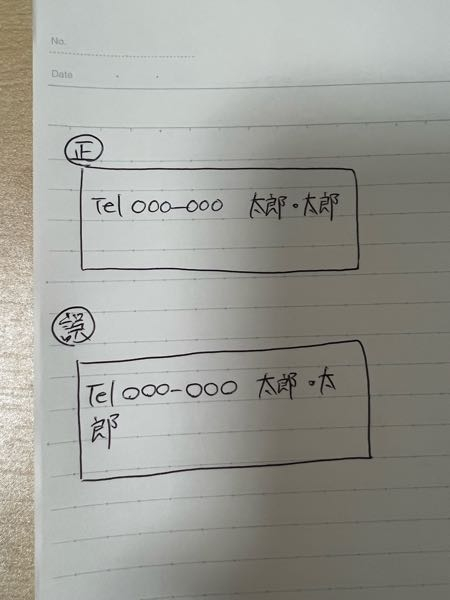 No.
Date
正
Tel 000-000 太郎・太郎
誤
Tel 000-000 太郎・太
郎